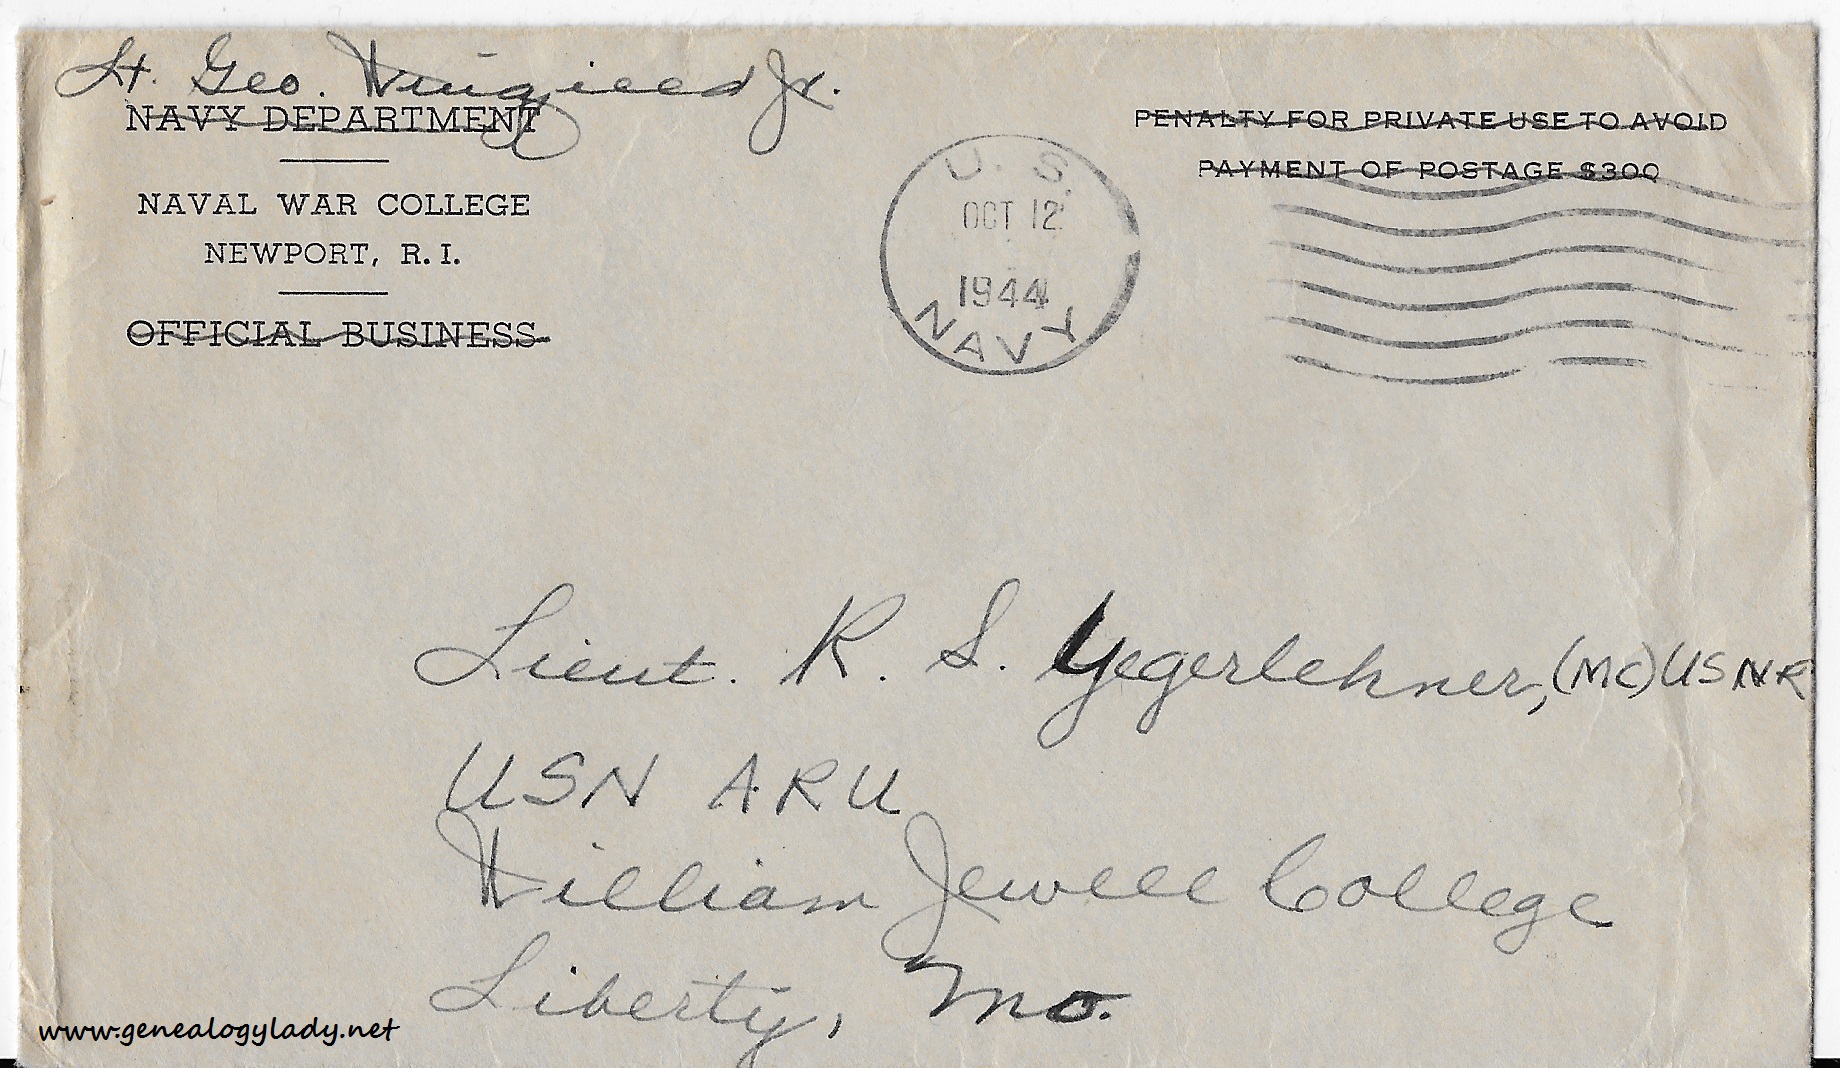 Lt. Geo. Jr.
NAVY DEPARTMENT
NAVAL WAR COLLEGE
NEWPORT, R. I.
OFFICIAL BUSINESS
U. S.
OCT 12
1944
NAVY
PENALTY FOR PRIVATE USE TO AVOID
PAYMENT OF POSTAGE $300
Lieut. R. S. Yegerlehner, (MC) USNR
USN ARU
William Jewell College
Liberty, Mo.
www.genealogylady.net